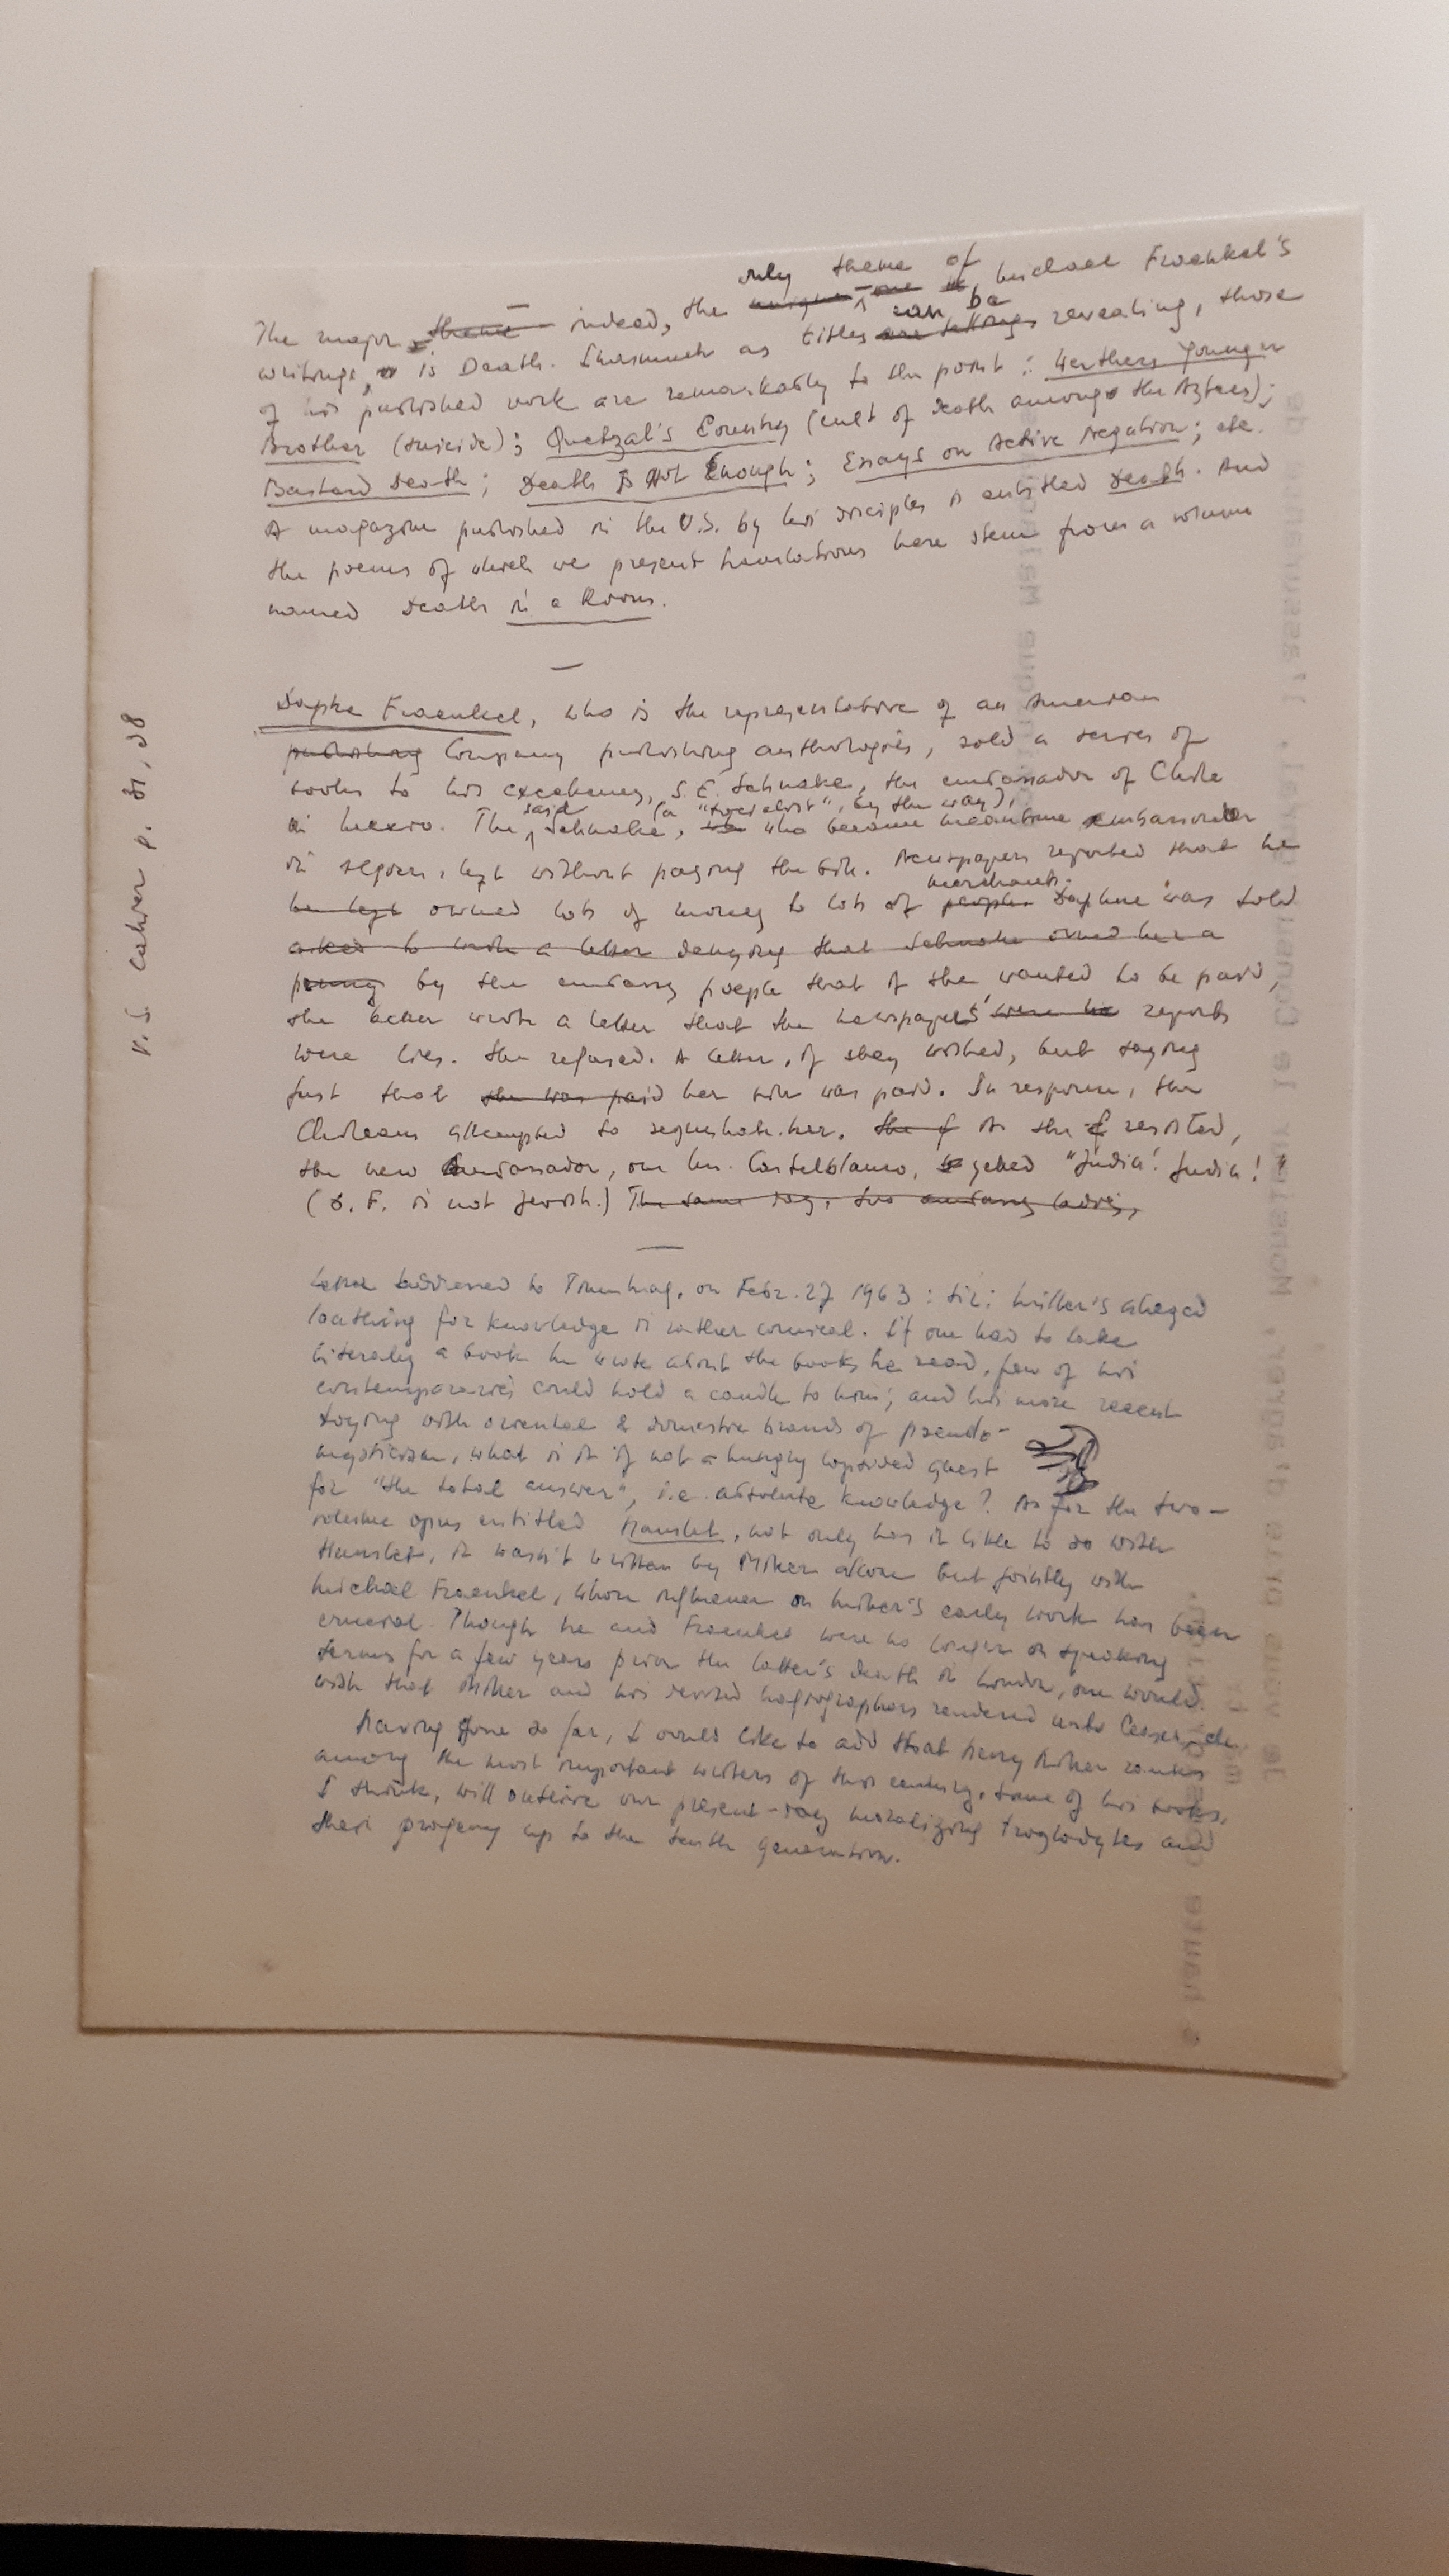 The major ~~theme~~ indeed, the ~~unique~~ only theme of ~~one~~ Michael Fraenkel's
writings, is Death. Inasmuch as titles ~~are tellings~~ can be revealing, those
of his published work are remarkably to the point : Werthers Younger
Brother (suicide); Quetzal's Country (cult of Death among the Aztecs);
Bastard Death ; Death Is Not Enough ; Essays on Active Negation ; etc.
A magazine published in the U.S. by his disciples is entitled Death. And
the poems of which we present translations here stem from a volume
named Death in a Room.
—
Daphne Fraenkel, who is the representative of an American
~~publishing~~ Company publishing anthologies, sold a series of
books to his excellency, S.E. Schnake, the embassador of Chile
in Mexico. The said Schnake, (a "socialist", by the way), who became meantime embassador
in , left without paying the bill. Newspapers reported that he
~~he left~~ owned lots of money to lots of ~~people~~ merchants. Daphne was told
~~asked to write a letter denying that Schnake owned her a~~
~~penny~~ by the embassy people that if she wanted to be paid,
she better wrote a letter that the newspapers' ~~were~~ reports
were lies. She refused. A letter, if they wished, but saying
just that ~~she was paid~~ her bill was paid. In response, the
Chileans attempted to sequestrate her. ~~She f~~ As she resisted,
the new Ambassador, one Mr. Castelblanco, yelled "Judia! Judia!
(D. F. is not Jewish.) ~~The same day, two embassy ladies,~~
—
Letter addressed to , on Febr. 27 1963 : Sir: Miller's alleged
loathing for knowledge is rather comical. If one had to take
literally a book he wrote about the books he read, few of his
contemporaries could hold a candle to him; and his more recent
toying with oriental & domestic brands of pseudo-
mysticism, what is it if not a hungry lopsided quest
for "the total answer", i.e. absolute knowledge? As for the two-
volume opus entitled Hamlet, not only has it little to do with
Hamlet, it wasn't written by Miller alone but jointly with
Michael Fraenkel, whose influence on Miller's early work has been
crucial. Though he and Fraenkel were no longer on speaking
terms for a few years prior the latter's death in London, one would
wish that Miller and his devoted hagiographers rendered unto Ceasar, etc.
Having gone so far, I would like to add that Henry Miller ranks
among the most important writers of this century. Some of his books,
I think, will outlive our present-day moralizing troglodytes and
their progeny up to the tenth generation.
V. S. Cahier p. 81, 88